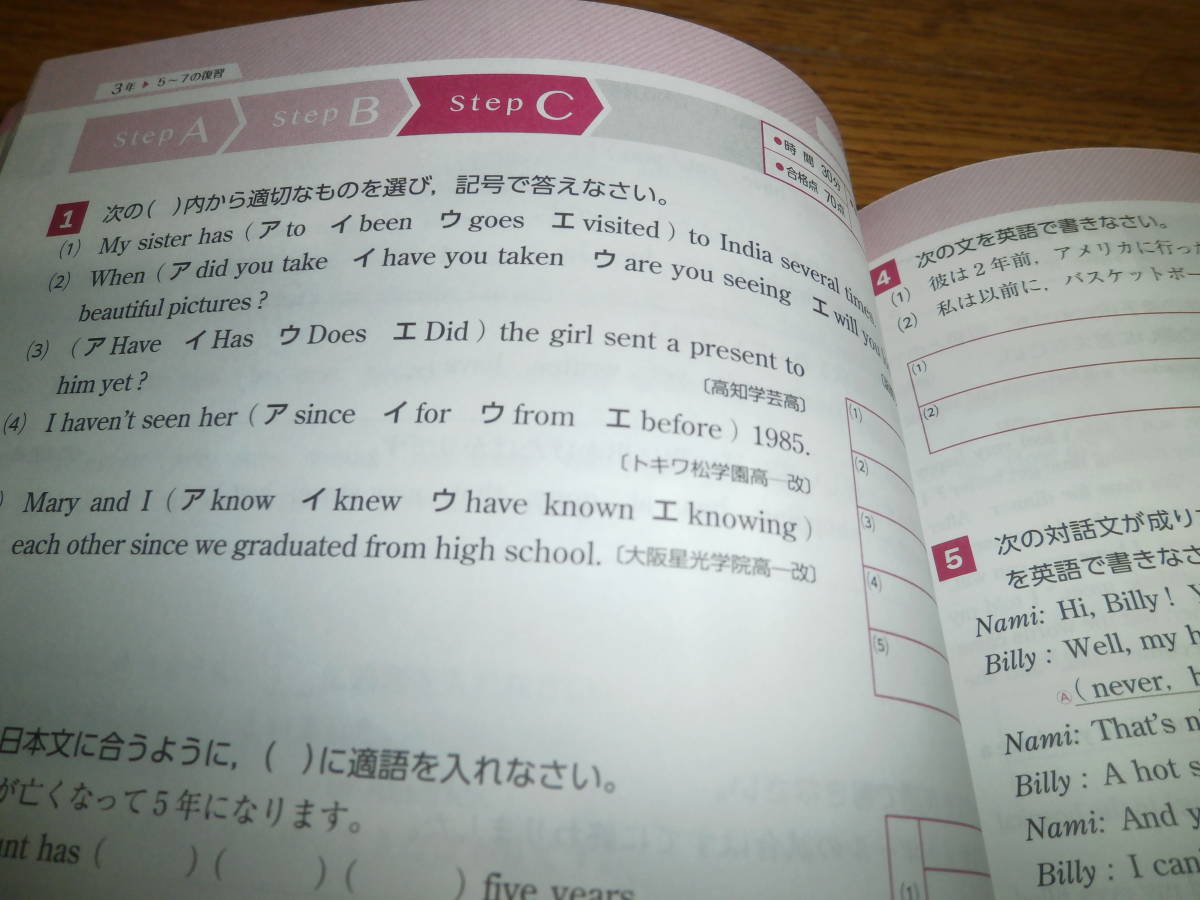 3年 ▶ 5～7の復習
Step A
Step B
Step C
●時間 30分
●合格点 70点
1 次の( )内から適切なものを選び，記号で答えなさい。
(1) My sister has ( ア to イ been ウ goes エ visited ) to India several times.
(2) When ( ア did you take イ have you taken ウ are you seeing エ will you
beautiful pictures ?
(3) ( ア Have イ Has ウ Does エ Did ) the girl sent a present to
him yet ?
〔高知学芸高〕
(4) I haven't seen her ( ア since イ for ウ from エ before ) 1985.
〔トキワ松学園高―改〕
) Mary and I ( ア know イ knew ウ have known エ knowing )
each other since we graduated from high school. 〔大阪星光学院高―改〕
(1)
(2)
(3)
(4)
(5)
日本文に合うように，( )に適語を入れなさい。
が亡くなって5年になります。
unt has ( )( )( ) five years
(1)
4 次の文を英語で書きなさい。
(1) 彼は2年前，アメリカに行っ
(2) 私は以前に，バスケットボー
(1)
(2)
5 次の対話文が成り
を英語で書きなさ
Nami: Hi, Billy !
Billy : Well, my
Ⓐ( never,
Nami: That's
Billy : A hot
Nami: And
Billy : I can